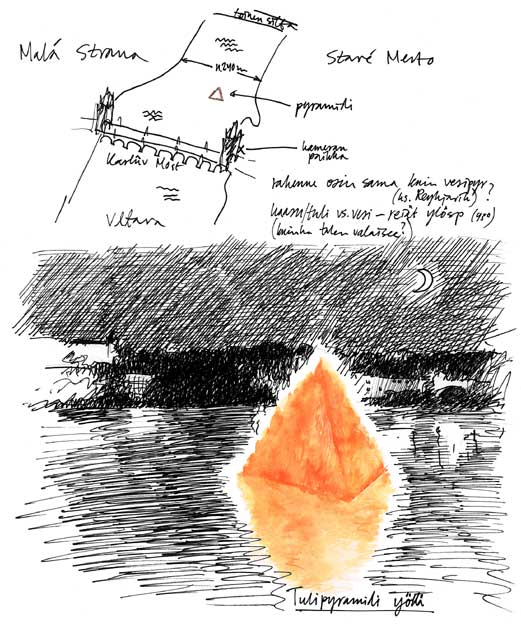 toinen silta
Malá Strana
Staré Mesto
n. 240 m
pyramidi
kameran
paikka
Karlův Most
rakenne osin sama kuin vesipyr?
(ks. Reykjavik)?
kaasu/tuli vs. vesi – reiät ylösp
(kuinka tulen valaisee?)
Vltava
Tulipyramidi yöllä